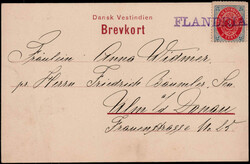 Dansk Vestindien
FLANDRIA
Brevkort
Fräulein Anna Widmer,
pr. Herrn Friedrich Bäumler, Sen.
Ulm a/ Donau
Frauenstrasse No.